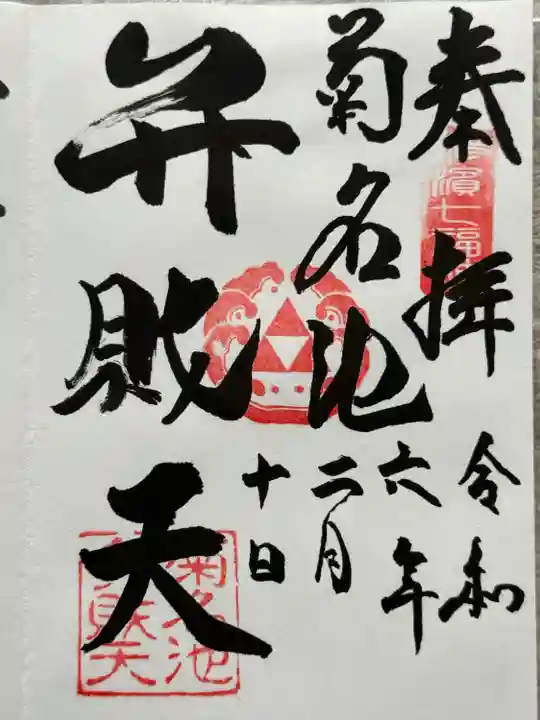 奉拝
令和
六年
二月
十日
菊名池
弁財天
濱七福
菊名池
財天